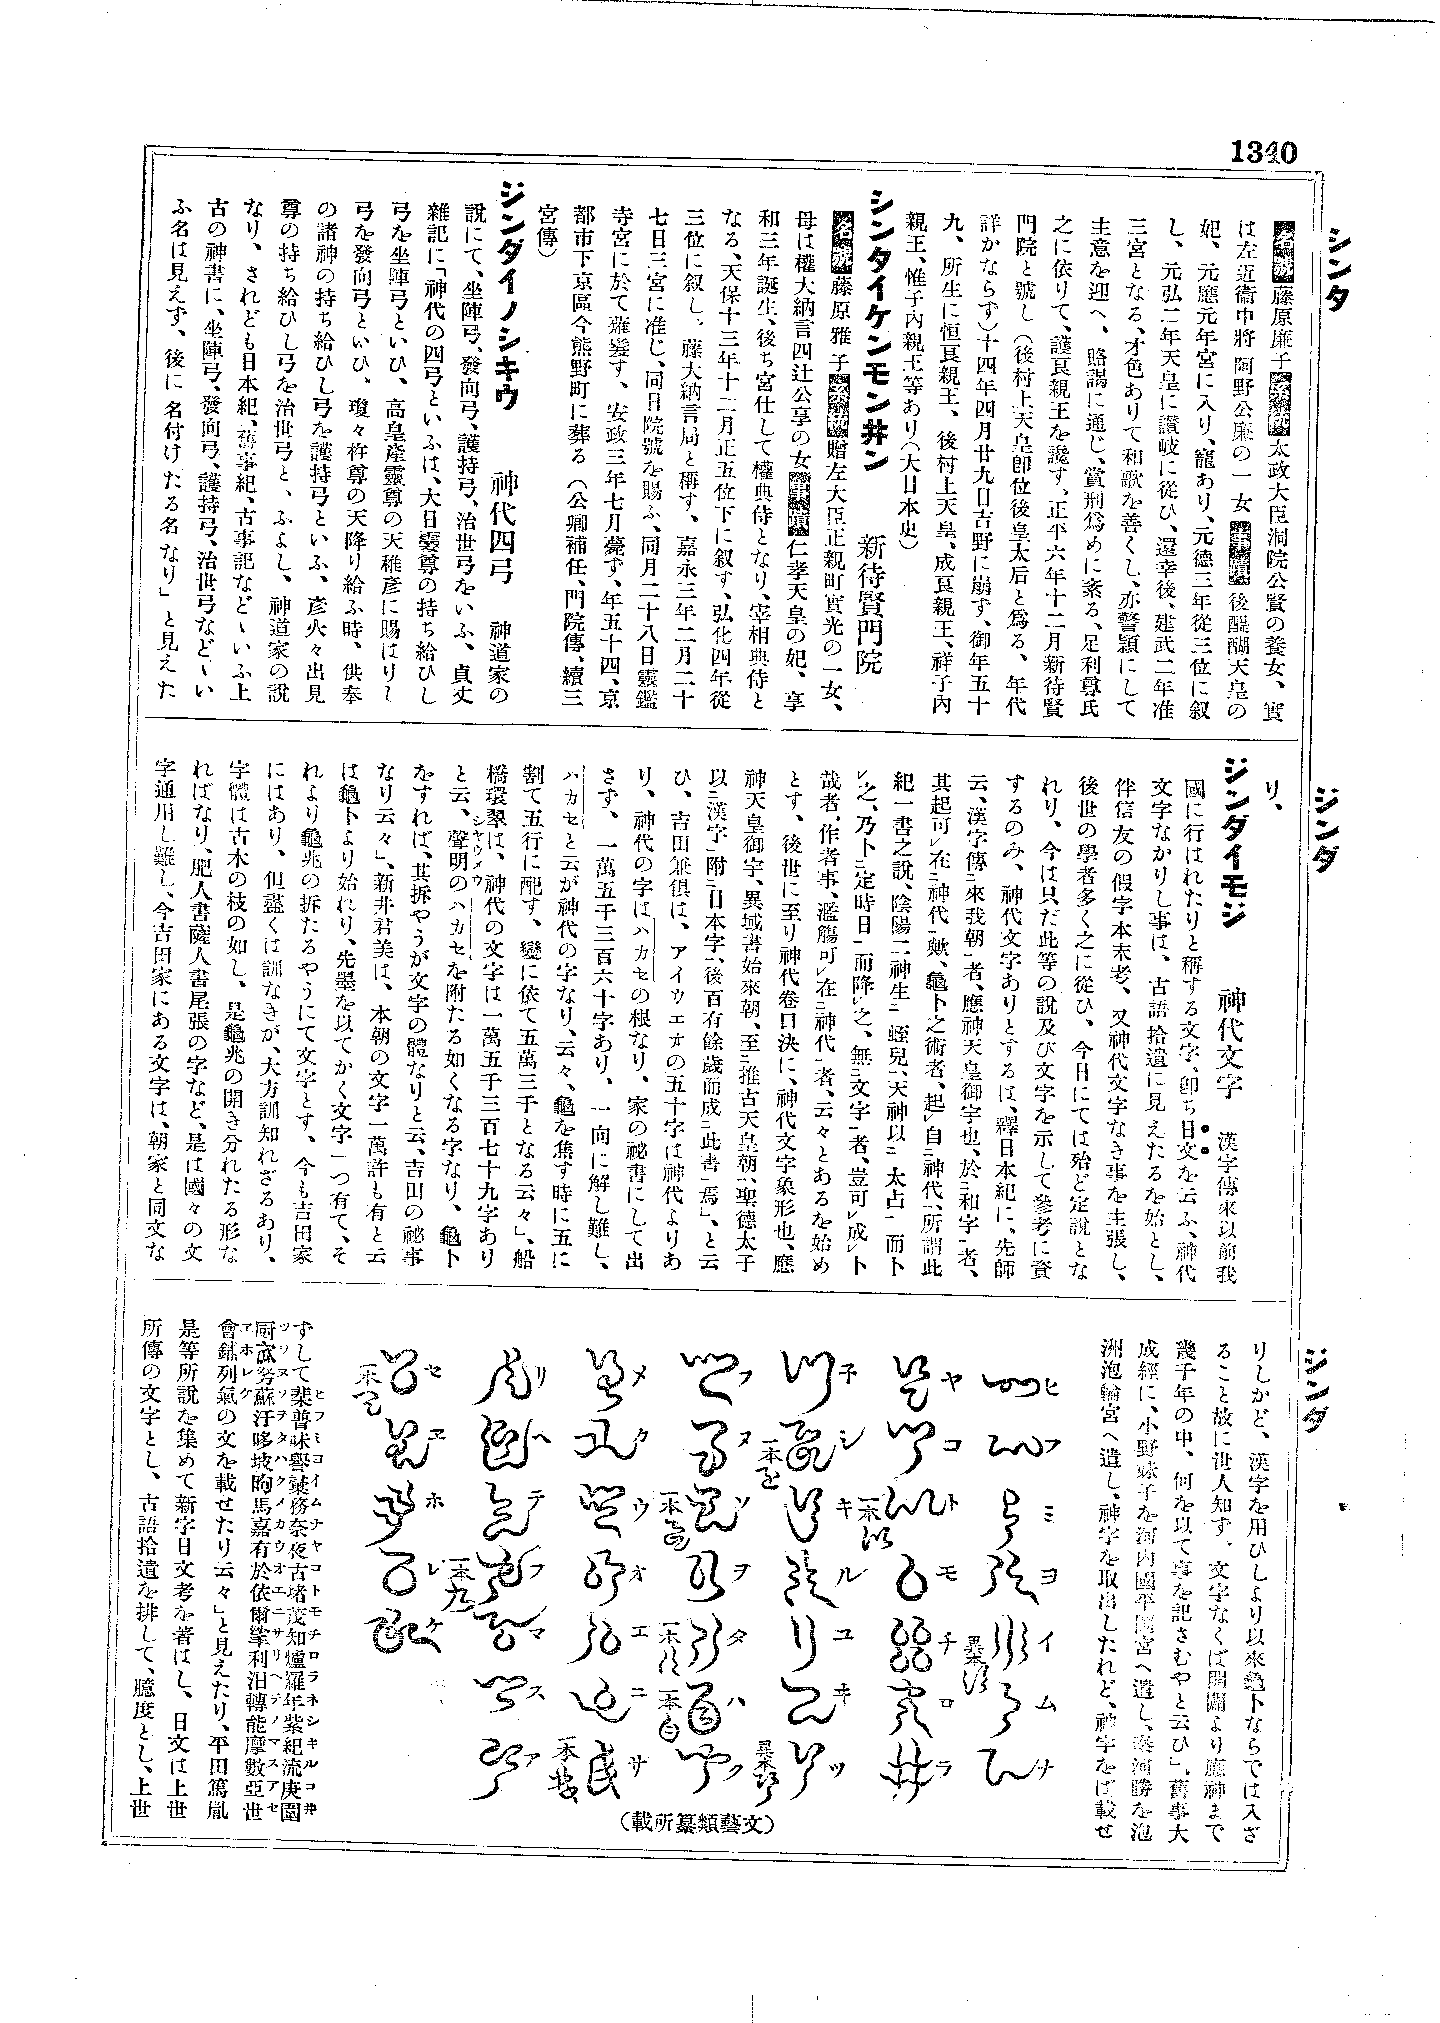 1340
シンタ
ジンダ
ジンダ
名號藤原廉子系統太政大臣洞院公賢の養女、實
は左近衞中將阿野公廉の一女事蹟後醍醐天皇の
妃、元應元年宮に入り、寵あり、元德三年從三位に叙
し、元弘二年天皇に讃岐に從ひ、還幸後、建武二年准
三宮となる、才色ありて和歌を善くし、亦警頴にして
主意を迎へ、賂謁に通じ、賞刑爲めに紊る、足利尊氏
之に依りて、護良親王を讒す、正平六年十二月新待賢
門院と號し（後村上天皇卽位後皇太后と爲る、年代
詳かならず）十四年四月廿九日吉野に崩ず、御年五十
九、所生に恒良親王、後村上天皇、成良親王、祥子內
親王、惟子內親王等あり（大日本史）
シンタイケンモン井ン　新待賢門院
名號藤原雅子系統贈左大臣正親町實光の一女、
母は權大納言四辻公享の女事蹟仁孝天皇の妃、享
和三年誕生、後ち宮仕して權典侍となり、宰相典侍と
なる、天保十三年十二月正五位下に叙す、弘化四年從
三位に叙し、藤大納言局と稱す、嘉永三年二月二十
七日三宮に准じ、同日院號を賜ふ、同月二十八日靈鑑
寺宮に於て薙髮す、安政三年七月薨ず、年五十四、京
都市下京區今熊野町に葬る（公卿補任、門院傳、續三
宮傳）
ジンダイノシキウ　神代四弓　神道家の
說にて、坐陣弓、發向弓、護持弓、治世弓をいふ、貞丈
雜記に「神代の四弓といふは、大日孁尊の持ち給ひし
弓を坐陣弓といひ、高皇產靈尊の天稚彥に賜はりし
弓を發向弓といひ、瓊々杵尊の天降り給ふ時、供奉
の諸神の持ち給ひし弓を護持弓といふ、彥火々出見
尊の持ち給ひし弓を治世弓と、ふよし、神道家の說
なり、されども日本紀、舊事紀、古事記など〻いふ上
古の神書に、坐陣弓、發向弓、護持弓、治世弓など〻い
ふ名は見えず、後に名付けたる名なり」と見えた
り、
ジンダイモジ　神代文字　漢字傳來以前我
國に行はれたりと稱する文字、卽ち日文を云ふ、神代
文字なかりし事は、古語拾遺に見えたるを始とし、
伴信友の假字本末考、又神代文字なき事を主張し、
後世の學者多く之に從ひ、今日にては殆ど定說とな
れり、今は只だ此等の說及び文字を示して參考に資
するのみ、神代文字ありとするは、釋日本紀に、先師
云、漢字傳ニ來我朝一者、應神天皇御宇也、於ニ和字一者、
其起可レ在ニ神代一歟、龜卜之術者、起レ自ニ神代一、所謂此
紀一書之說、陰陽二神生ニ蛭兒一、天神以ニ太占一而卜
レ之、乃卜ニ定時日一而降レ之、無ニ文字一者、豈可レ成レ卜
哉者、作者事、濫觴可レ在ニ神代一者、云々とあるを始め
とす、後世に至り神代卷口決に、神代文字象形也、應
神天皇御宇、異域書始來朝、至ニ推古天皇朝一、聖德太子
以ニ漢字一附ニ日本字一、後百有餘歲而成ニ此書一焉」、と云
ひ、吉田兼俱は、アイウエオの五十字は神代よりあ
り、神代の字はハカセの根なり、家の祕書にして出
さず、一萬五千三百六十字あり、一向に解し難し、
ハカセと云が神代の字なり、云々、龜を焦す時に五に
割て五行に配す、變に依て五萬三千となる云々」、船
橋環翠は、神代の文字は一萬五千三百七十九字あり
と云、聲明のハカセを附たる如くなる字なり、龜卜
をすれば、其拆やうが文字の體なりと云、吉田の祕事
なり云々」、新井君美は、本朝の文字一萬許も有と云
は龜卜より始れり、先墨を以てかく文字一つ有て、そ
れより龜兆の拆たるやうにて文字とす、今も吉田家
にはあり、但盡くは訓なきが、大方訓知れざるあり、
字體は古木の枝の如し、是龜兆の開き分れたる形な
ればなり、肥人書薩人書尾張の字など、是は國々の文
字通用し難し、今吉田家にある文字は、朝家と同文な
りしかど、漢字を用ひしより以來龜卜ならでは入ざ
ること故に世人知ず、文字なくば開闢より應神まで
幾千年の中、何を以て事を記さむやと云ひ」、舊事大
成經に、小野妹子を河內國平岡宮へ遣し、秦河勝を泡
洲泡輪宮へ遣し、神字を取出したれど、神字をば載せ
ヒフミヨイムナ
ヤコトモチロラ
ネシキルユ井ツ
ワヌソヲタハク
メカウオエニサ
リヘテノマスア
セエホレケ
（文藝類纂所載）
ずして柴普味譽異務奈夜古堵茂知爐羅年紫紀流庚園
會鏃列氣の文を載せたり云々」と見えたり、平田篤胤
是等所說を集めて新字日文考を著はし、日文は上世
所傳の文字とし、古語拾遺を排して、臆度とし、上世